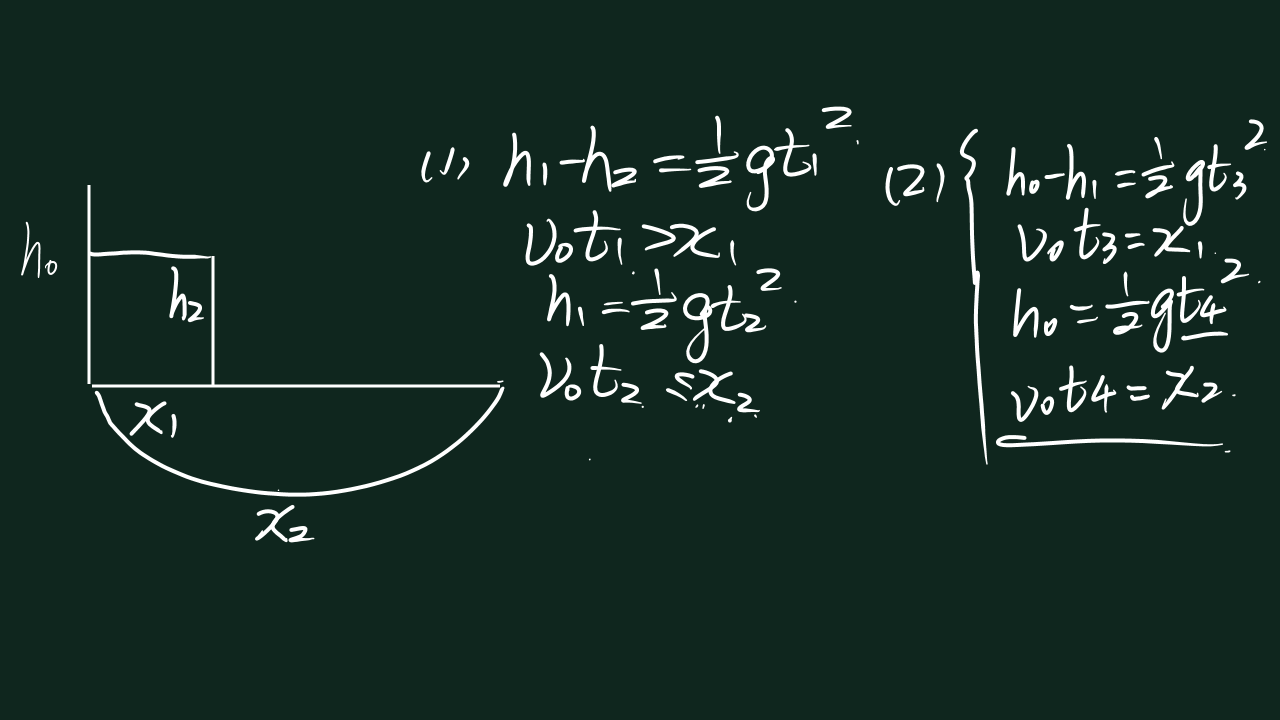 h₀
h₂
x₁
x₂
(1) h₁-h₂=½gt₁²
v₀t₁>x₁
h₁=½gt₂²
v₀t₂≤x₂
(2) { h₀-h₁=½gt₃²
v₀t₃=x₁
h₀=½gt₄²
v₀t₄=x₂